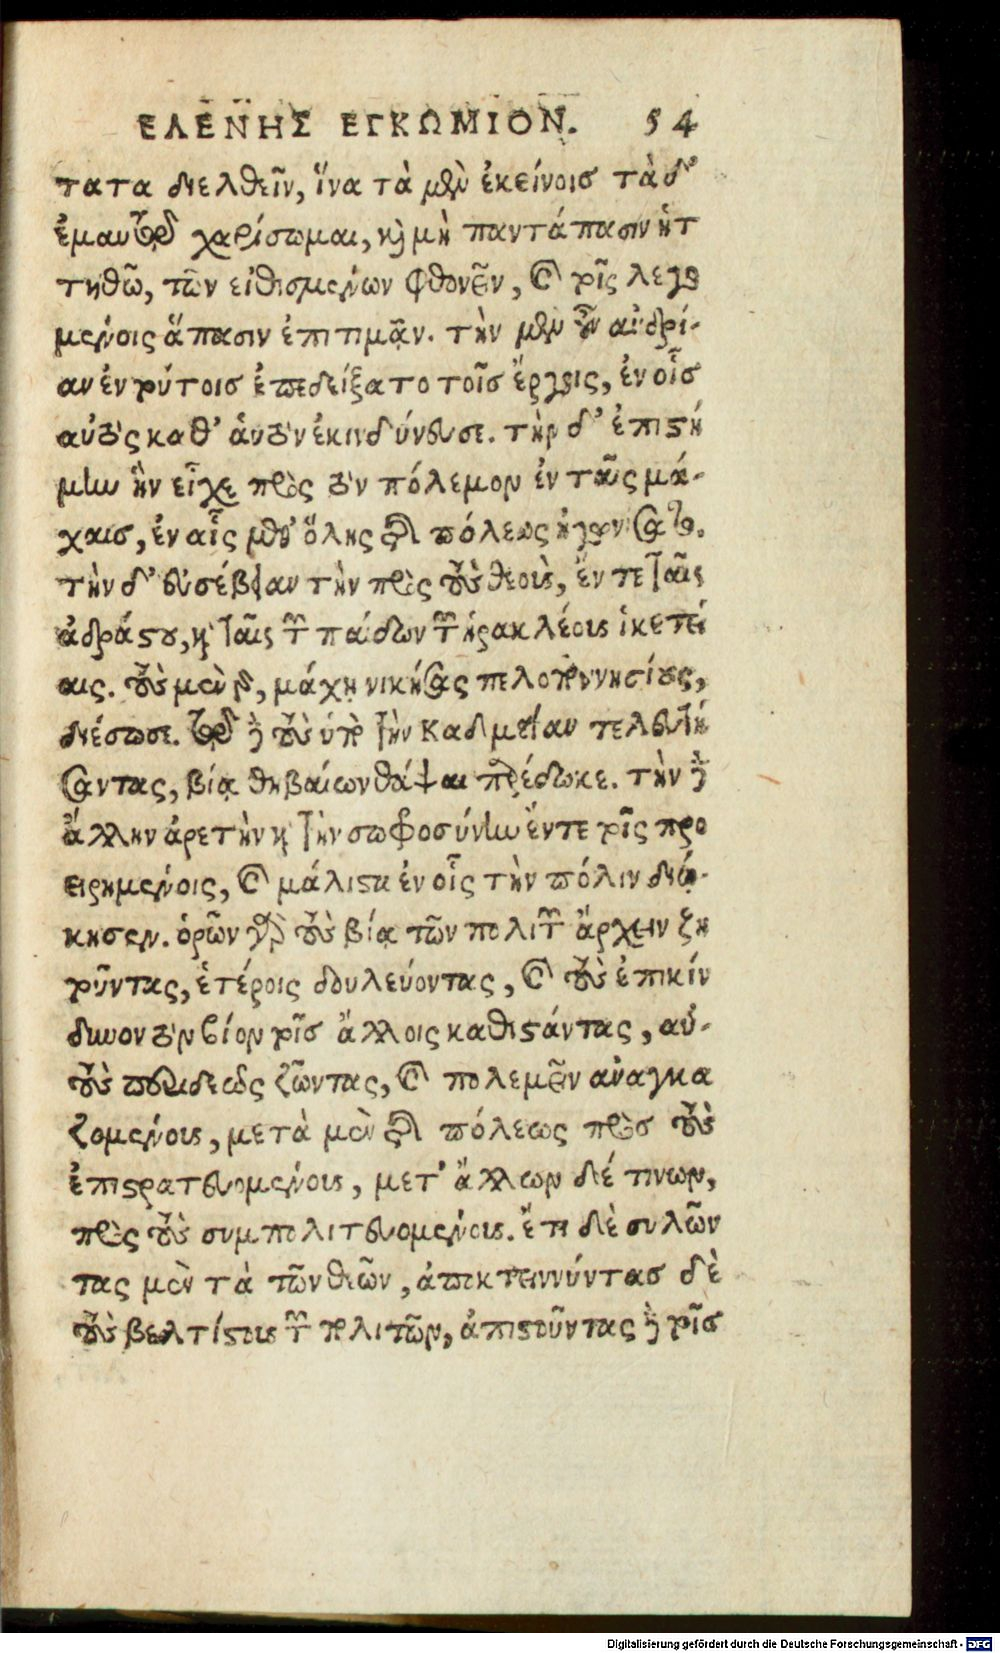 ΕΛΕΝΗΣ ΕΓΚΩΜΙΟΝ. 54
τατα διελθεῖν, ἵνα τὰ μὲν ἐκείνοις τὰ δ'
ἐμαυτῷ χαρίσωμαι, καὶ μὴ παντάπασιν ἡτ
τηθῶ, τῶν εἰθισμένων φθονεῖν, καὶ τοῖς λεγο
μένοις ἅπασιν ἐπιτιμᾷν. τὴν μὲν οὖν ἀνδρί-
αν ἐν τούτοις ἐπεδείξατο τοῖς ἔργοις, ἐν οἷς
αὐτὸς καθ' αὑτὸν ἐκινδύνευσε. τὴν δ' ἐπιστή
μην ἣν εἶχε πρὸς τὸν πόλεμον ἐν ταῖς μά-
χαις, ἐν αἷς μεθ' ὅλης τῆς πόλεως ἠγωνίσατο.
τὴν δ' εὐσέβειαν τὴν πρὸς τοὺς θεοὺς, ἔν τε ταῖς
ἀδράστου, καὶ ταῖς τῶν παίδων τῶν ἡρακλέους ἱκετεί
αις. τοὺς μὲν γὰρ, μάχῃ νικήσας πελοποννησίους,
διέσωσε. τῷ δὲ τοὺς ὑπὸ τὴν Καδμείαν τελευτή
σαντας, βίᾳ θηβαίων θάψαι παρέδωκε. τὴν δὲ
ἄλλην ἀρετὴν καὶ τὴν σωφροσύνην ἔν τε τοῖς προ
ειρημένοις, καὶ μάλιστα ἐν οἷς τὴν πόλιν διῴ-
κησεν. ὁρῶν γὰρ τοὺς βίᾳ τῶν πολιτῶν ἄρχειν ζη
τοῦντας, ἑτέροις δουλεύοντας, καὶ τοὺς ἐπικίν
δυνον τὸν βίον τοῖς ἄλλοις καθιστάντας, αὐ-
τοὺς περιδεῶς ζῶντας, καὶ πολεμεῖν ἀναγκα
ζομένους, μετὰ μὲν τῆς πόλεως πρὸς τοὺς
ἐπιστρατευομένους, μετ' ἄλλων δέ τινων,
πρὸς τοὺς συμπολιτευομένους. ἔτι δὲ συλῶν
τας μὲν τὰ τῶν θεῶν, ἀποκτειννύντας δὲ
τοὺς βελτίστους τῶν πολιτῶν, ἀπιστοῦντας δὲ τοῖς
Digitalisierung gefördert durch die Deutsche Forschungsgemeinschaft - DFG